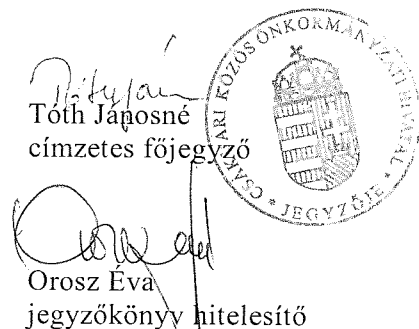 Tóth Jánosné
címzetes főjegyző
CSÁKVÁRI KÖZÖS ÖNKORMÁNYZATI HIVATAL
* JEGYZŐJE *
Orosz Éva
jegyzőkönyv hitelesítő